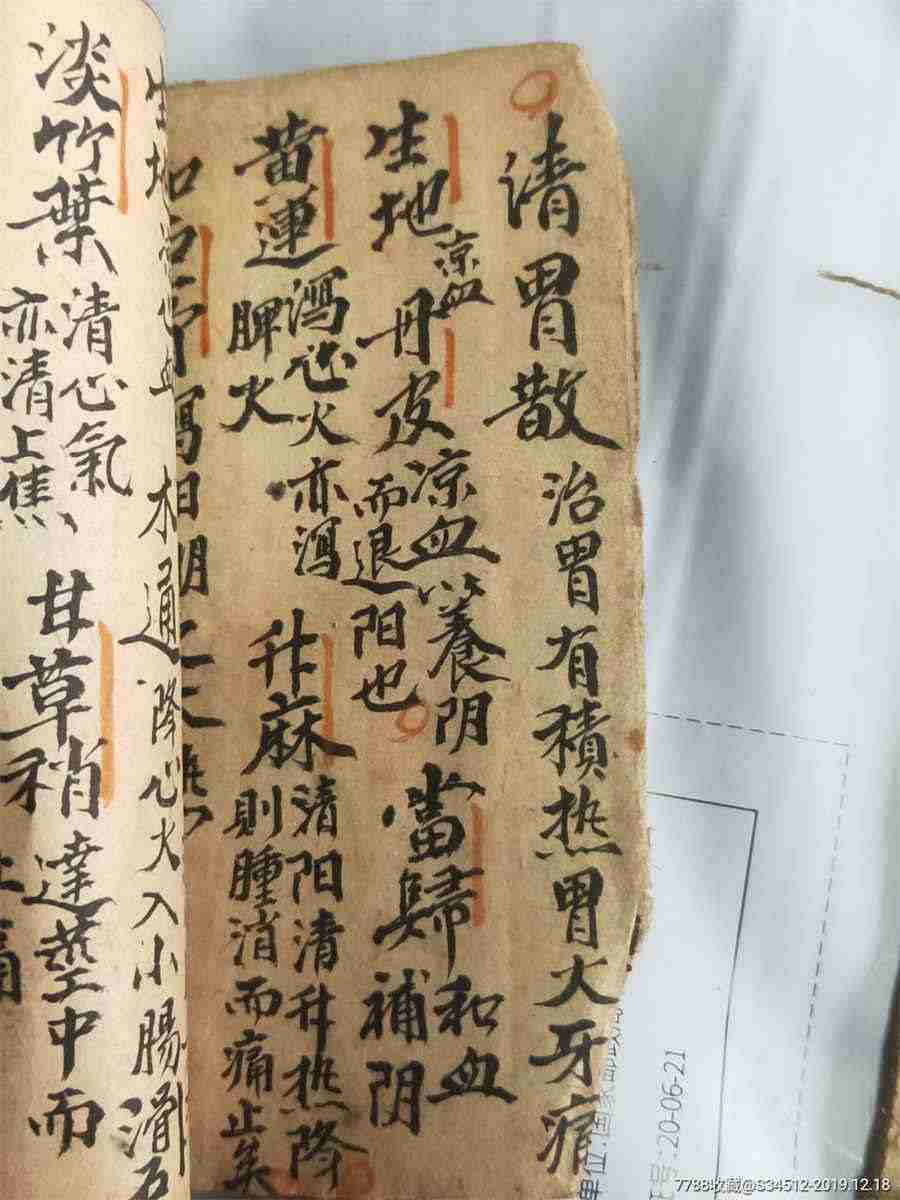 清胃散 治胃有積热胃火牙痛
生地 凉血 丹皮 凉血養阴而退阳也 當歸 和血補阴
黄連 瀉心火亦瀉脾火 升麻 清阳清升热降則腫消而痛止矣
加石 瀉相
木通 降心火入小腸 滑石
淡竹葉 清心氣亦清上焦 甘草稍 達莖中而
单位:国
号:20-06-21
7788收藏@S34512-2019.12.18